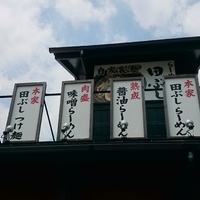 らーめん
田ぶし
本家
田ぶしらーめん
熟成
醤油らーめん
肉盛
味噌らーめん
本家
田ぶしつけ麺